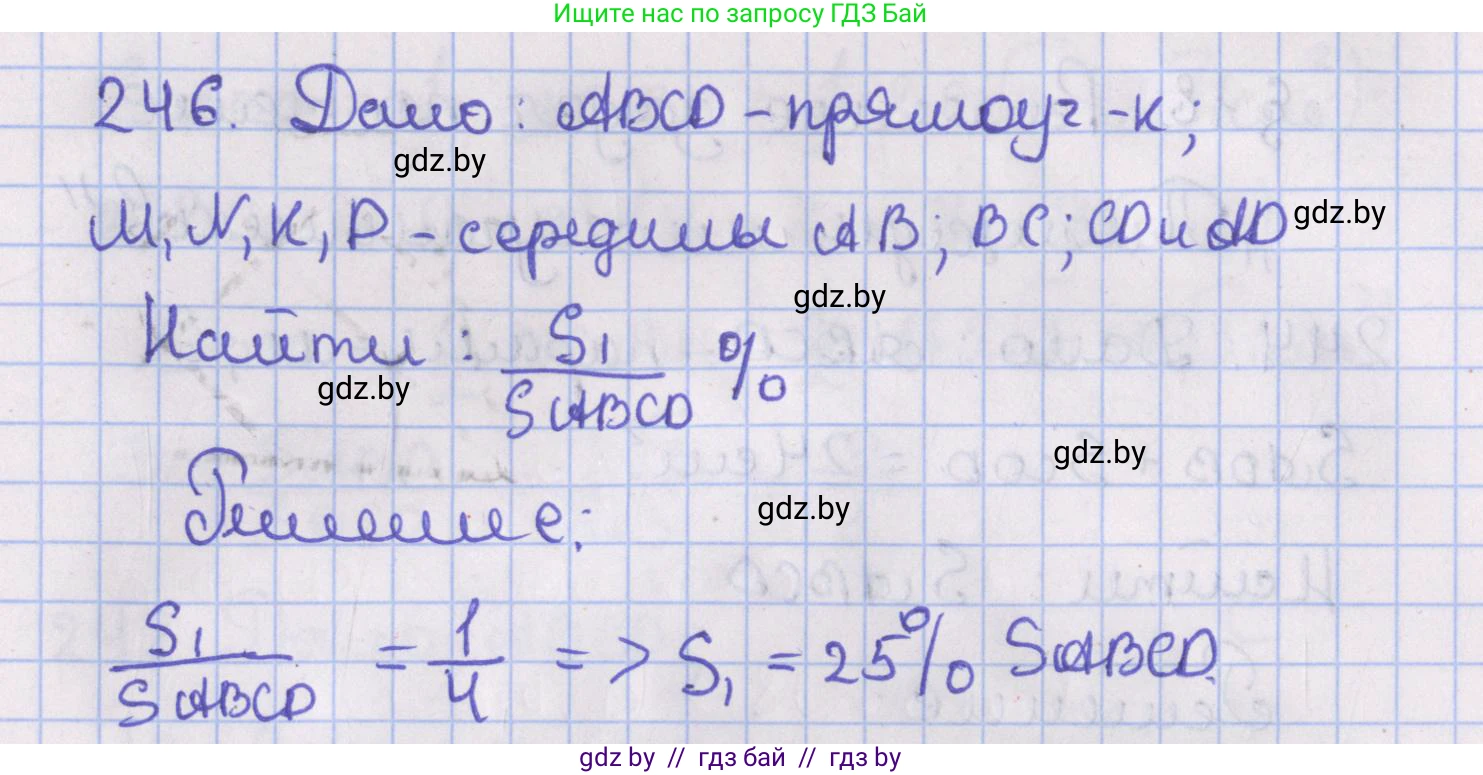 Ищите нас по запросу ГДЗ Бай
246. Дано: ABCD - прямоуг-к;
gdz.by
M, N, K, P - середины AB; BC; CD и AD gdz.by
gdz.by
Найти: S1/SABCD %
gdz.by
gdz.by
Решение:
gdz.by
S1/SABCD = 1/4 => S1 = 25% SABCD.
gdz.by // гдз бай // гдз.by